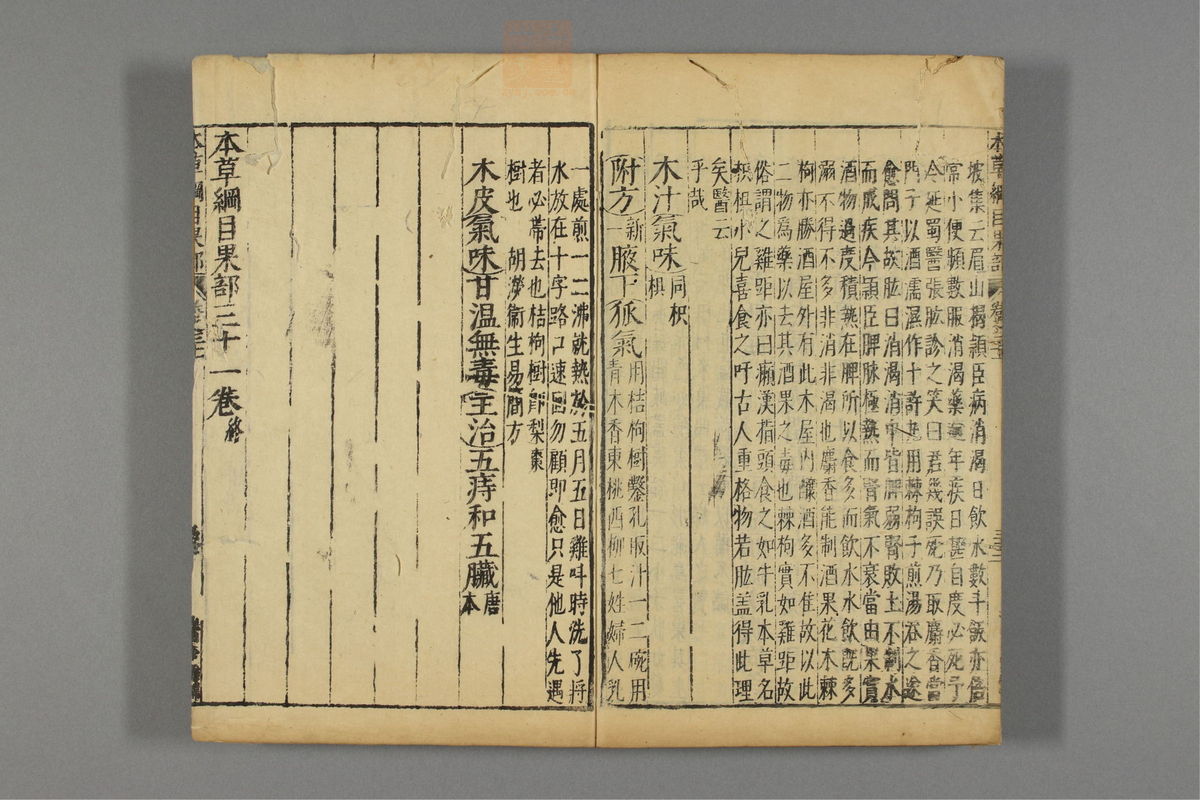 坡集云眉山楊頴臣病消渴日飲水數斗飯亦倍
常小便頻數服消渴藥逾年疾日甚自度必死予
令延蜀醫張肱診之笑曰君幾誤死乃取麝香當
門子以酒濡濕作十許丸用棘枸子煎湯吞之遂
愈問其故肱曰消渴消中皆脾弱腎敗土不制水
而成疾今頴臣脾脉極熱而腎氣不衰當由果實
酒物過度積熱在脾所以食多而飲水水飲既多
溺不得不多非消非渴也麝香能制酒果花木棘
枸亦勝酒屋外有此木屋内釀酒多不佳故以此
二物爲藥以去其酒果之毒也棘枸實如雞距故
俗謂之雞距亦曰癩漢指頭食之如牛乳本草名
枳椇小兒喜食之吁古人重格物若肱盖得此理
矣醫云
乎哉
木汁氣味同枳椇
附方新一腋下狐氣用桔枸樹鑿孔取汁一二碗用
青木香東桃西柳七姓婦人乳
一處煎一二沸就熱於五月五日雞叫時洗了將
水放在十字路口速回勿顧即愈只是他人先遇
者必帶去也桔枸樹即梨棗
樹也　胡濙衞生易簡方
木皮氣味甘温無毒主治五痔和五臟唐本
本草綱目果部三十一卷終